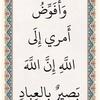 وَأُفَوِّضُ
أَمْرِي إِلَى
اللَّهِ إِنَّ اللَّهَ
بَصِيرٌ بِالْعِبَادِ